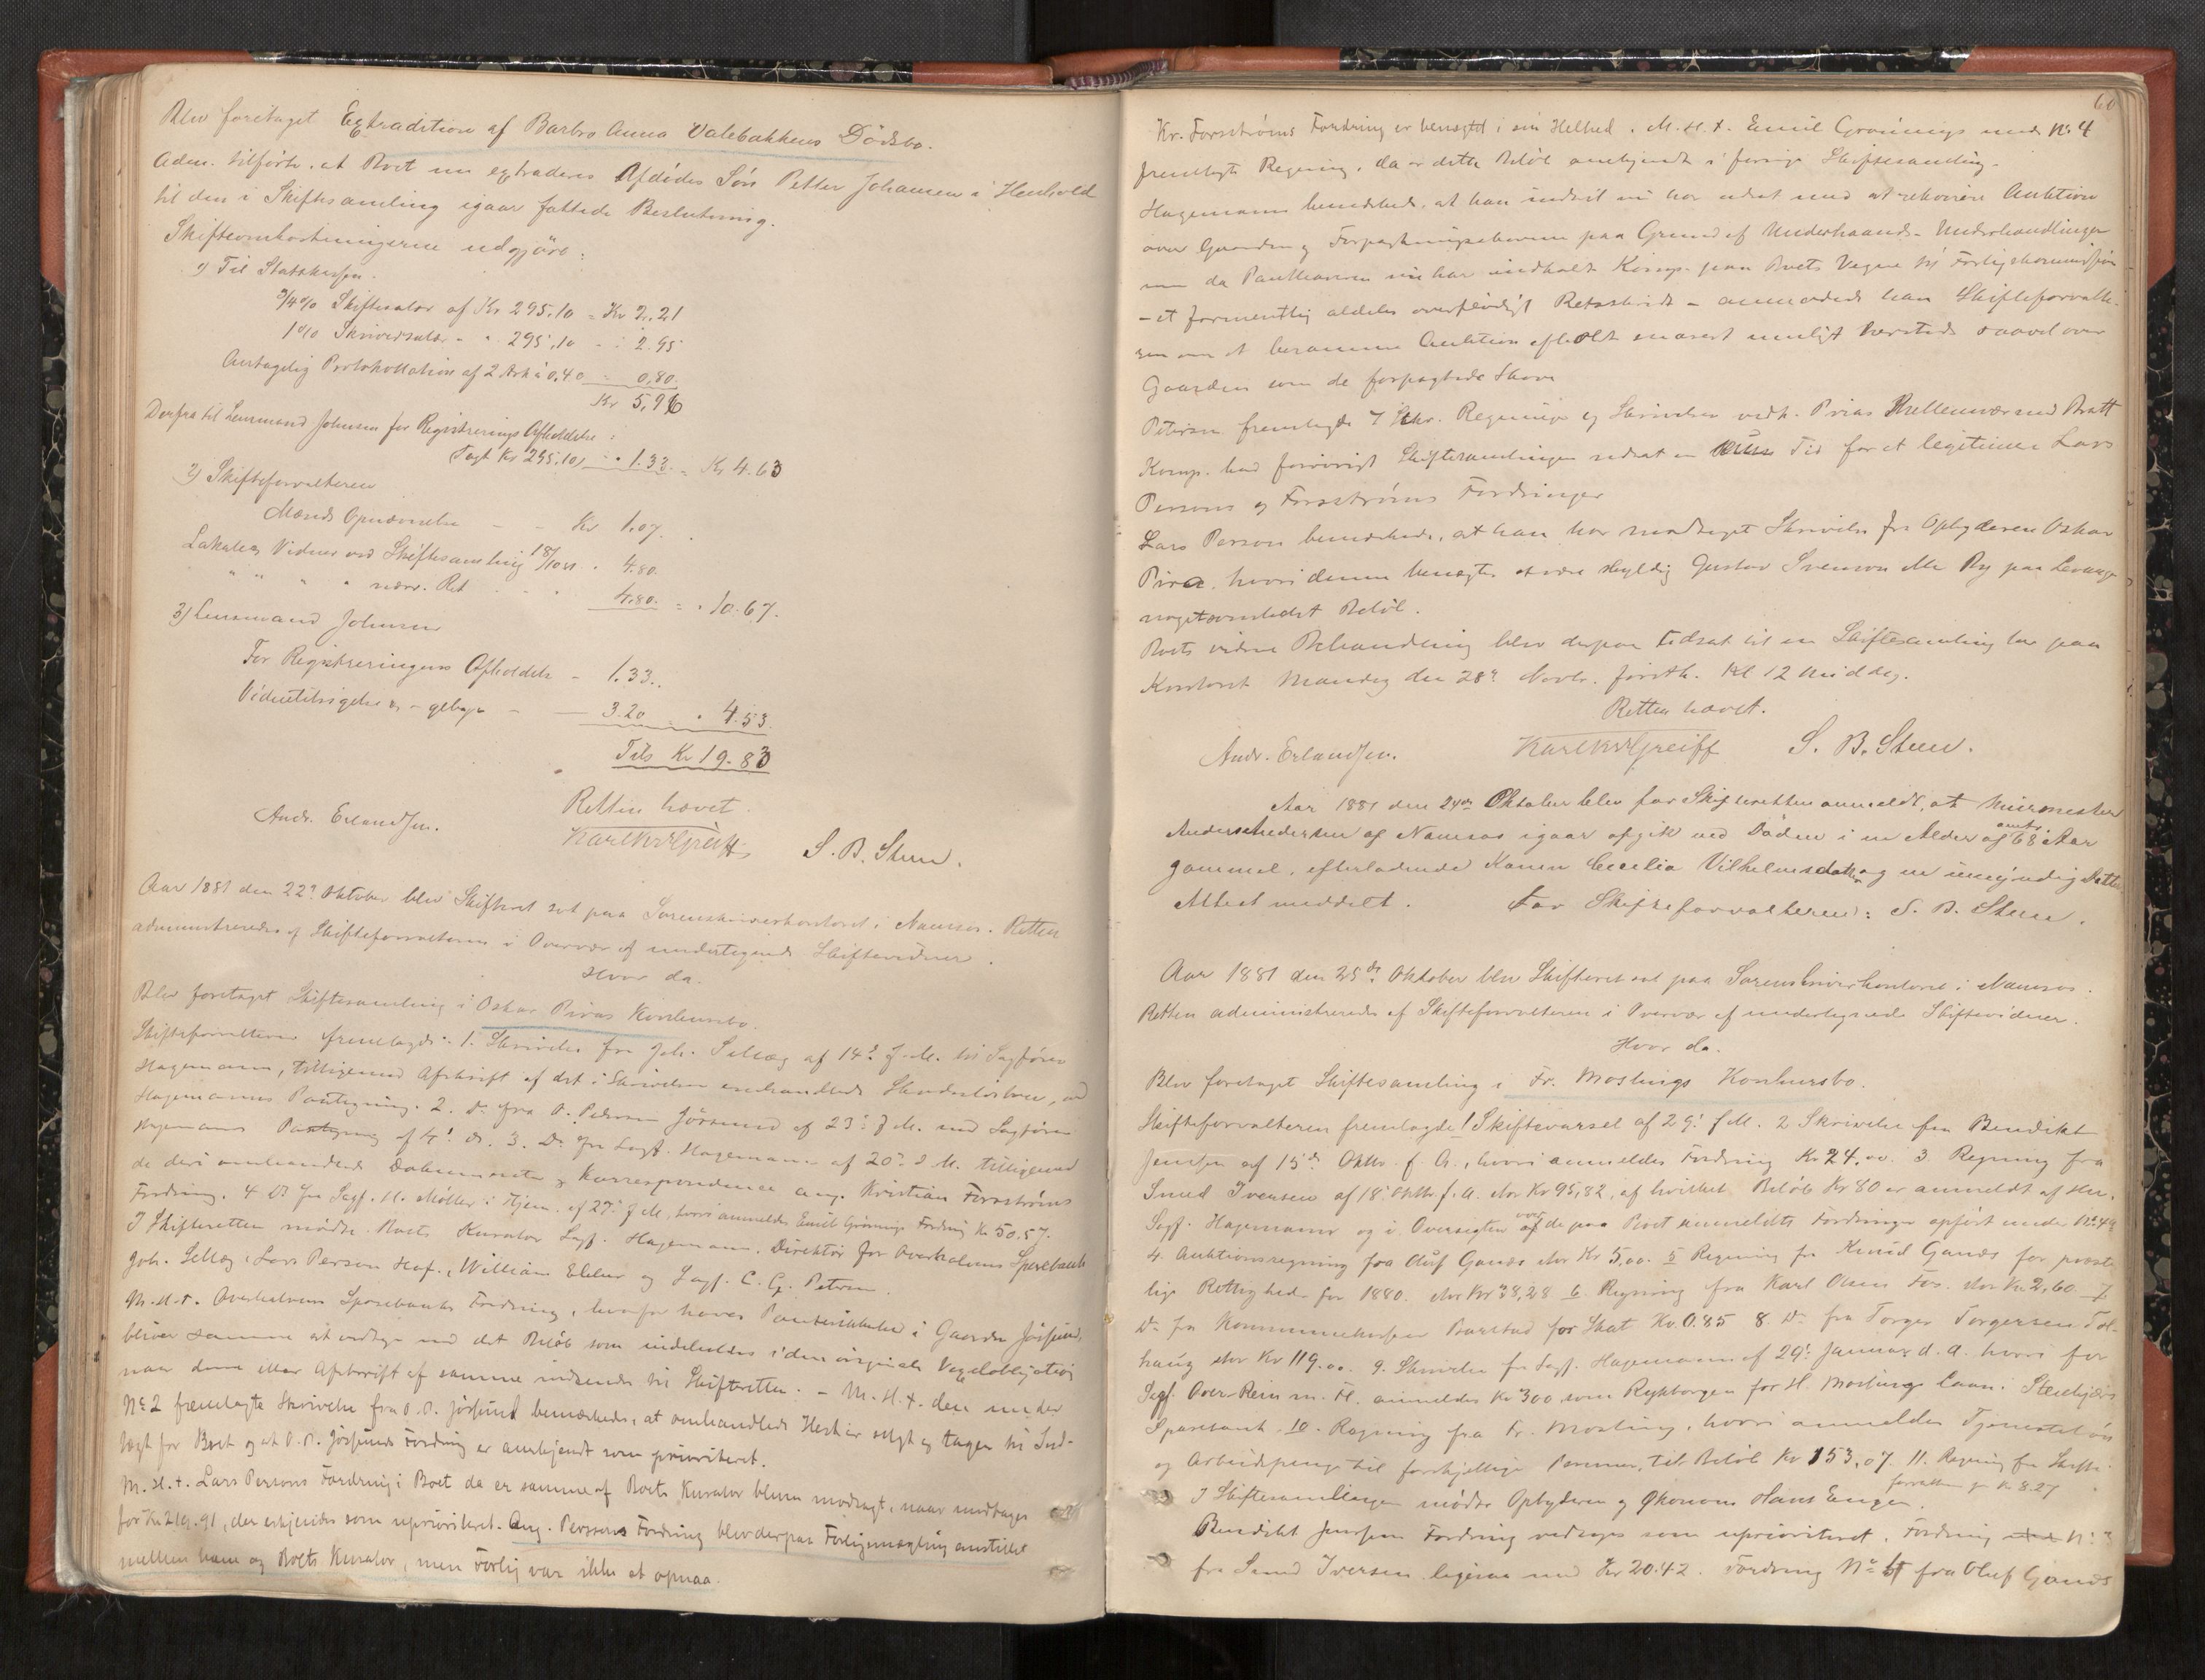 Blev foretaget Extradition af Barbro Anna Valebakkens Dødsbo.
Adm. tilførte, at Boet nu extraderes Afdødes Søn Petter Johansen i Henhold
til den i Skiftesamling igaar fattede Beslutning.
Skifteomkostningerne udgjøre:
1) Til Statskassen.
3/4 % Skiftesalær af Kr 295.10 = Kr 2.21
1 % Skriversalær - " 295,10 - " 2.95
Antagelig Protokollation af 2 Ark à 0,40 - 0,80.
Kr 5,96
Derfra til Lensmand Johnsen for Registrerings Afholdelse:
Taxt Kr 295,10, - " 1.33 = Kr 4.63
2) Skifteforvalteren
Mænds Opnævnelse - - Kr 1.07.
Lokale og Vidner ved Skiftesamling 18/10 81 " 4.80.
" " " " nærv. Ret - - " 4.80. = " 10.67.
3) Lensmand Johnsen
For Registreringens Afholdelse - 1.33.
Vidnetilsigelse & - gebyr - 3.20 " 4.53.
Tils Kr 19.83
Retten hævet.
Andr. Erlandsen. Karl Kr Greiff S. B. Steen.
Aar 1881 den 22de Oktober blev Skifteret sat paa Sorenskriverkontoret i Namsos. Retten
administreredes af Skifteforvalteren i Overvær af undertegnede Skiftevidner.
Hvor da.
Blev foretaget Skiftesamling i Oskar Piras Konkursbo.
Skifteforvalteren fremlagde: 1. Skrivelse fra Joh. Sellæg af 14de f. M. til Sagfører
Hagemann, tilligemed Afskrift af det i Skrivelsen omhandlede Skadesløsbrev, med
Hagemanns Paategning. 2. Do fra O. Pedersen Jørsund af 23de f. M. med Sagfører
Hagemanns Paategning af 4de ds. 3. Do fra Sagf. Hagemann af 20de d. M. tilligemed
de deri omhandlede Dokumenter og Korrespondence ang. Kristian Forsstrøms
Fordring. 4 Do fra Sagf. H. Møller i Hjem. af 27de f. M., hvori anmeldes Emil Grønings Fordring Kr 50.57.
I Skifteretten mødte Boets Kurator Sagf. Hagemann, Direktør for Overhalvens Sparebank
Joh. Sellæg, Lars Person Haf., William Ekker og Sagf. C. G. Petersen.
M. H. t. Overhalvens Sparebanks Fordring, hvorfor haves Panterettelse i Gaarden Jørsund,
bliver samme at vedtage med det Beløb som indeholdes i den originale Vexelobligation
naar denne eller Afskrift af samme indsendes til Skifteretten. - M. H. t. den under
No 2 fremlagte Skrivelse fra O. P. Jørsund bemærkedes, at omhandlede Hest er solgt og tagen til Ind-
tægt for Boet og at O. P. Jørsunds Fordring er anerkjendt som prioriteret.
M. H. t. Lars Persons Fordring i Boet da er samme af Boets Kurator bleven modsagt, naar undtages
for Kr 219.91, der erkjendes som uprioriteret. Ang. Perssons Fordring blev derpaa Forligsmægling anstillet
mellem ham og Boets Kurator, men Forlig var ikke at opnaa.
60
Kr. Forsstrøms Fordring er benegtet i sin Helhed. M. H. t. Emil Grønings under No 4
fremlagte Regning, da er dette Beløb anerkjendt i forrige Skiftesamling.
Hagemann bemærkede, at han indtil nu har udsat med at rekvirere Auktion
over Gaarden og Forpagtningsskoven paa Grund af Underhaands-Underhandlinger
men da Panthaveren nu har indkaldt Komp. paa Boets Vegne til Forligskommission
- et formentlig aldeles overflødigt Retsskridt - anmodede han Skifteforvalte-
ren om at beramme Auktion afholdt snarest muligt herstede saavel over
Gaarden som de forpagtede Skove
Petersen fremlagde 7 Skr. Regninger og Skrivelser vedk. Piras Mellemvær med Bratt
Komp. bad forøvrigt Skiftesamlingen udsat en Tid for at legitimere Lars
Persons og Forsstrøms Fordringer
Lars Person bemærkede, at han har modtaget Skrivelse fra Opbyderen Oskar
Pira. hvori denne benegter at være skyldig Gustav Svenson Me By paa Levanger
nogetsomhelst Beløb.
Boets videre Behandling blev derpaa udsat til en Skiftesamling her paa
Kontoret Mandag den 28de Novbr. førstk. Kl 12 Middag.
Retten hævet.
Andr. Erlandsen. Karl Kr Greiff S. B. Steen.
Aar 1881 den 24de Oktober blev for Skifteretten anmeldt, at Murmester
Anders Andersen af Namsos igaar afgik ved Døden i en Alder af omtr. 68 Aar
gammel, efterladende Konen Cecilia Vilhelmsdatter og en umyndig Datter
Attest meddelt. For Skifteforvalteren: S. B. Steen.
Aar 1881 den 25de Oktober blev Skifteret sat paa Sorenskriverkontoret i Namsos.
Retten administreredes af Skifteforvalteren i Overvær af undertegnede Skiftevidner.
Hvor da.
Blev foretaget Skiftesamling i Fr. Moslings Konkursbo.
Skifteforvalteren fremlagde 1 Skiftevarsel af 29de f. M. 2 Skrivelse fra Bendikt
Jenssen af 15de Oktbr. f. A., hvori anmeldes Fordring Kr 24.00. 3. Regning fra
Smed Iversen af 18de Oktbr f. A. stor Kr 95,82, af hvilket Beløb Kr 80 er anmeldt af Hr.
Sagf. Hagemann og i Oversigten over de paa Boet anmeldte Fordringer opført under No 49
4. Auktionsregning fra Oluf Ganæs stor Kr 5,00. 5 Regning fra Knud Ganæs for præste-
lige Rettigheder for 1880. stor Kr 38,28 6. Regning fra Karl Olsen Fos. stor Kr 2,60 7
Do fra Kommunekassen Barstad for Skat Kr 0.85 8. Do fra Torger Torgersen Tøl-
haug stor Kr 119.00. 9. Skrivelse fra Sagf. Hagemann af 29de Januar d. A. hvori for
Sagf. Over-Rein m. Fl. anmeldes Kr 300 som Rykborgen for H. Moslings Laan i Stenkjærs
Sparebank. 10. Regning fra Fr. Mosling, hvori anmeldes Tjenesteløn
og Arbeidspenge til forskjellige Personer, tils Beløb Kr 153,07. 11. Regning fra Skifte-
forvalteren Kr 8.27
I Skiftesamlingen mødte Opbyderen og Økonom Hans Engen.
Bendikt Jenssens Fordring vedtages som uprioriteret. Fordring No 3
fra Smed Iversen ligesaa med Kr 20.42. Fordring No 4 fra Oluf Ganæs